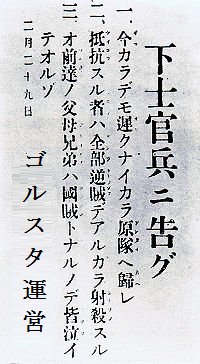 下士官兵ニ告グ
一、今カラデモ遅クナイカラ原隊ヘ歸レ
二、抵抗スル者ハ全部逆賊デアルカラ射殺スル
三、オ前達ノ父母兄弟ハ國賊トナルノデ皆泣イ
テオルゾ
二月二十九日
ゴルスタ運営